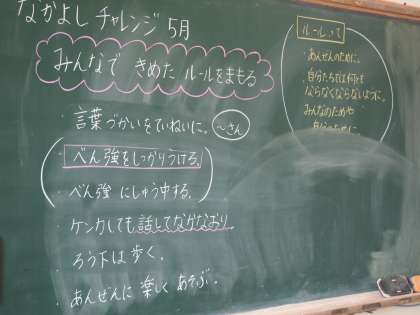 なかよし チャレンジ 5月
みんなで きめた ルールをまもる
・言葉づかいをていねいに。 ～さん
べん強をしっかりうけろ。
・べん強 にしゅう中する。
・ケンカしても話してなかなおり
・ろう下は 歩く。
・あんぜんに 楽しく あそぶ。
ルールって
・あんぜんのために。
・自分たちでは何にも
ならなくならないように。
みんなのためや
自分のために